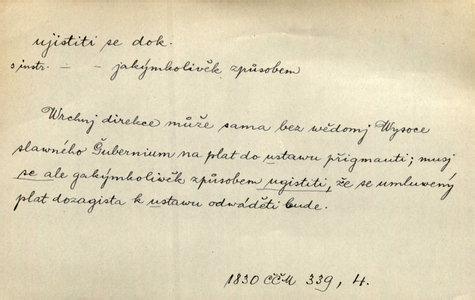 ujistiti se dok.
s instr. — - jakýmkolivěk způsobem
Wrchnj direkce může sama bez wědomj Wysoce
slawného Ǧubernium na plat do ustawu přigmauti; musj
se ale gakýmkolivěk způsobem ugistiti, že se umluwený
plat dozagista k ustawu odwáděti bude.
1830 ČČM 339, 4.